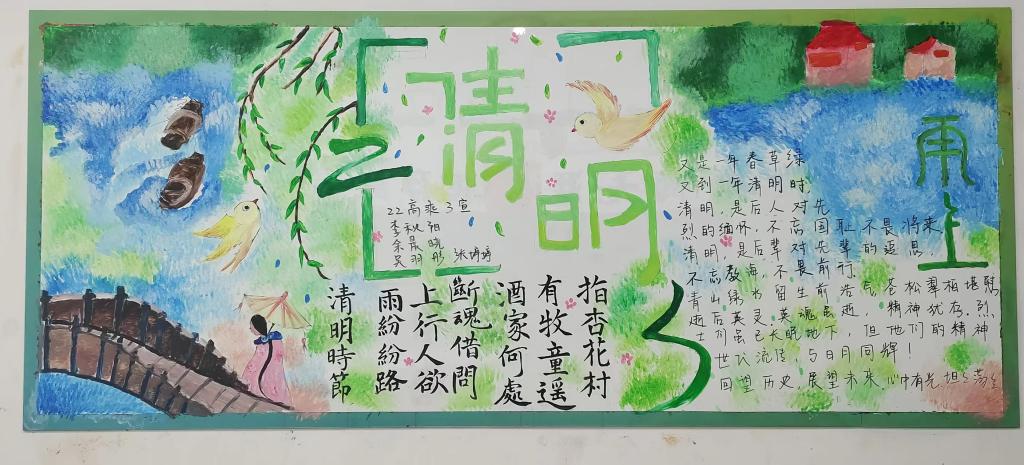 清明
之
雨上
22高爽3宣
李秋阳
余晨晓
吴羽彤 张婷婷
清明時節
雨紛紛路
上行人欲
斷魂借問
酒家何處
有牧童遥
指杏花村
又是一年春草绿
又到一年清明时
清明,是后人对先
烈的缅怀,不 国耻不畏将来,
清明,是后辈对先辈的遥思,
不 教诲,不畏前行。
青山绿水留生前浩气苍松翠柏堪慰
逝后英灵,英魂虽逝,精神犹存,烈
士们虽已长眠地下,但他们的精神
世代流传,与日月同辉!
回望历史,展望未来,心中有光,坦坦荡荡